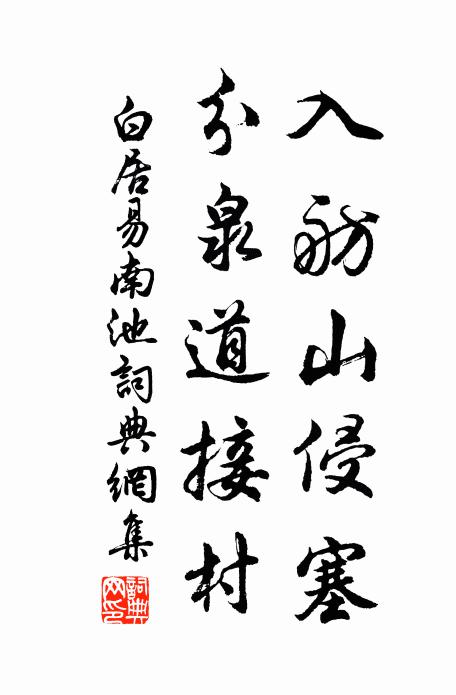 入舫山侵塞
分泉道接村
白居易南池詞典網集
詞典網印